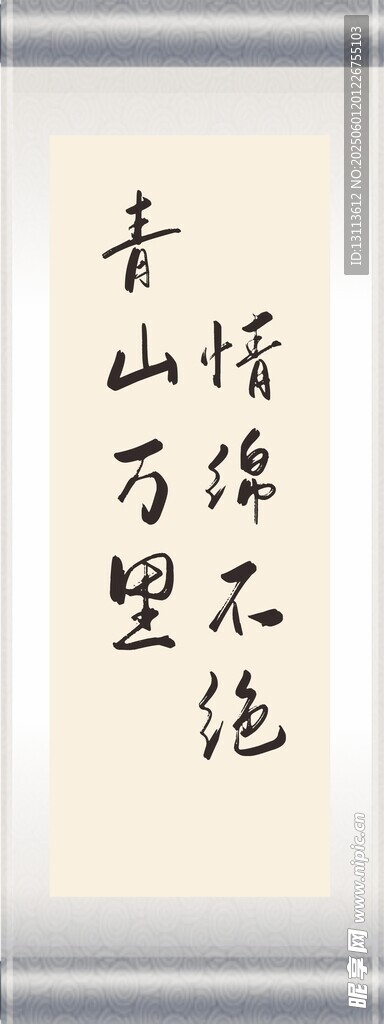 青山万里
情绵不绝
ID:13113612 NO:20250601201226755103
昵享网 www.nipic.cn